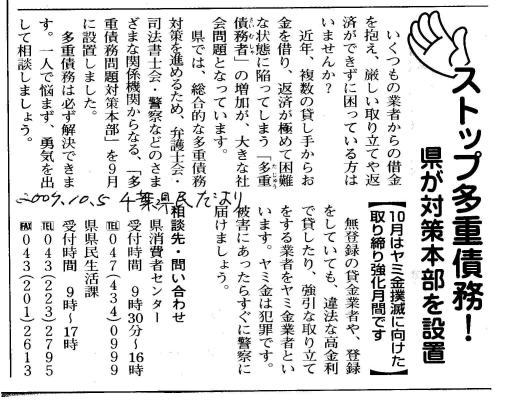 ストップ多重債務！
県が対策本部を設置
いくつもの業者からの借金
を抱え、厳しい取り立てや返
済ができずに困っている方は
いませんか？
近年、複数の貸し手からお
金を借り、返済が極めて困難
な状態に陥ってしまう「多重
債務者」の増加が、大きな社
会問題となっています。
県では、総合的な多重債務
対策を進めるため、弁護士会・
司法書士会・警察などのさま
ざまな関係機関からなる、「多
重債務問題対策本部」を9月
に設置しました。
多重債務は必ず解決できま
す。一人で悩まず、勇気を出
して相談しましょう。
2007.10.5 千葉県民だより
【10月はヤミ金撲滅に向けた
取り締り強化月間です】
無登録の貸金業者や、登録
をしていても、違法な高金利
で貸したり、強引な取り立て
をする業者をヤミ金業者とい
います。ヤミ金は犯罪です。
被害にあったらすぐに警察に
届けましょう。
相談先・問い合わせ
県消費者センター
受付時間 9時30分～16時
TEL 047(434)0999
県県民生活課
受付時間 9時～17時
TEL 043(223)2795
FAX 043(201)2613